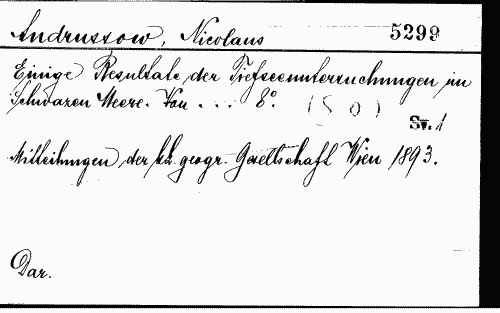 Andrussow, Nicolaus 5299
Einige Resultate der Tiefseeuntersuchungen im
Schwarzen Meere. Von ... 8°. (S 0)
Sv. 1
Mitteilungen der kk. geogr. Gesellschaft Wien 1893.
Dar.